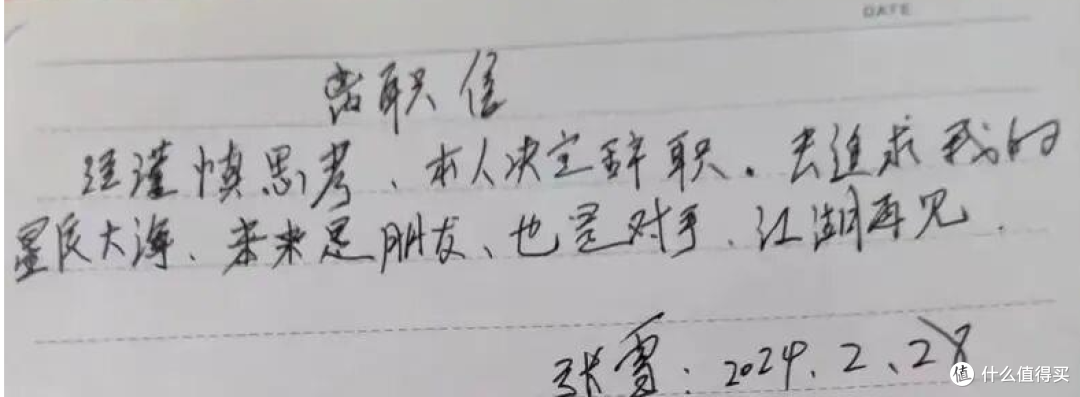 DATE
离职信
经谨慎思考、本人决定辞职。去追求我的
星辰大海、未来是朋友、也是对手、江湖再见.
张雪: 2024.2、28
值 什么值得买